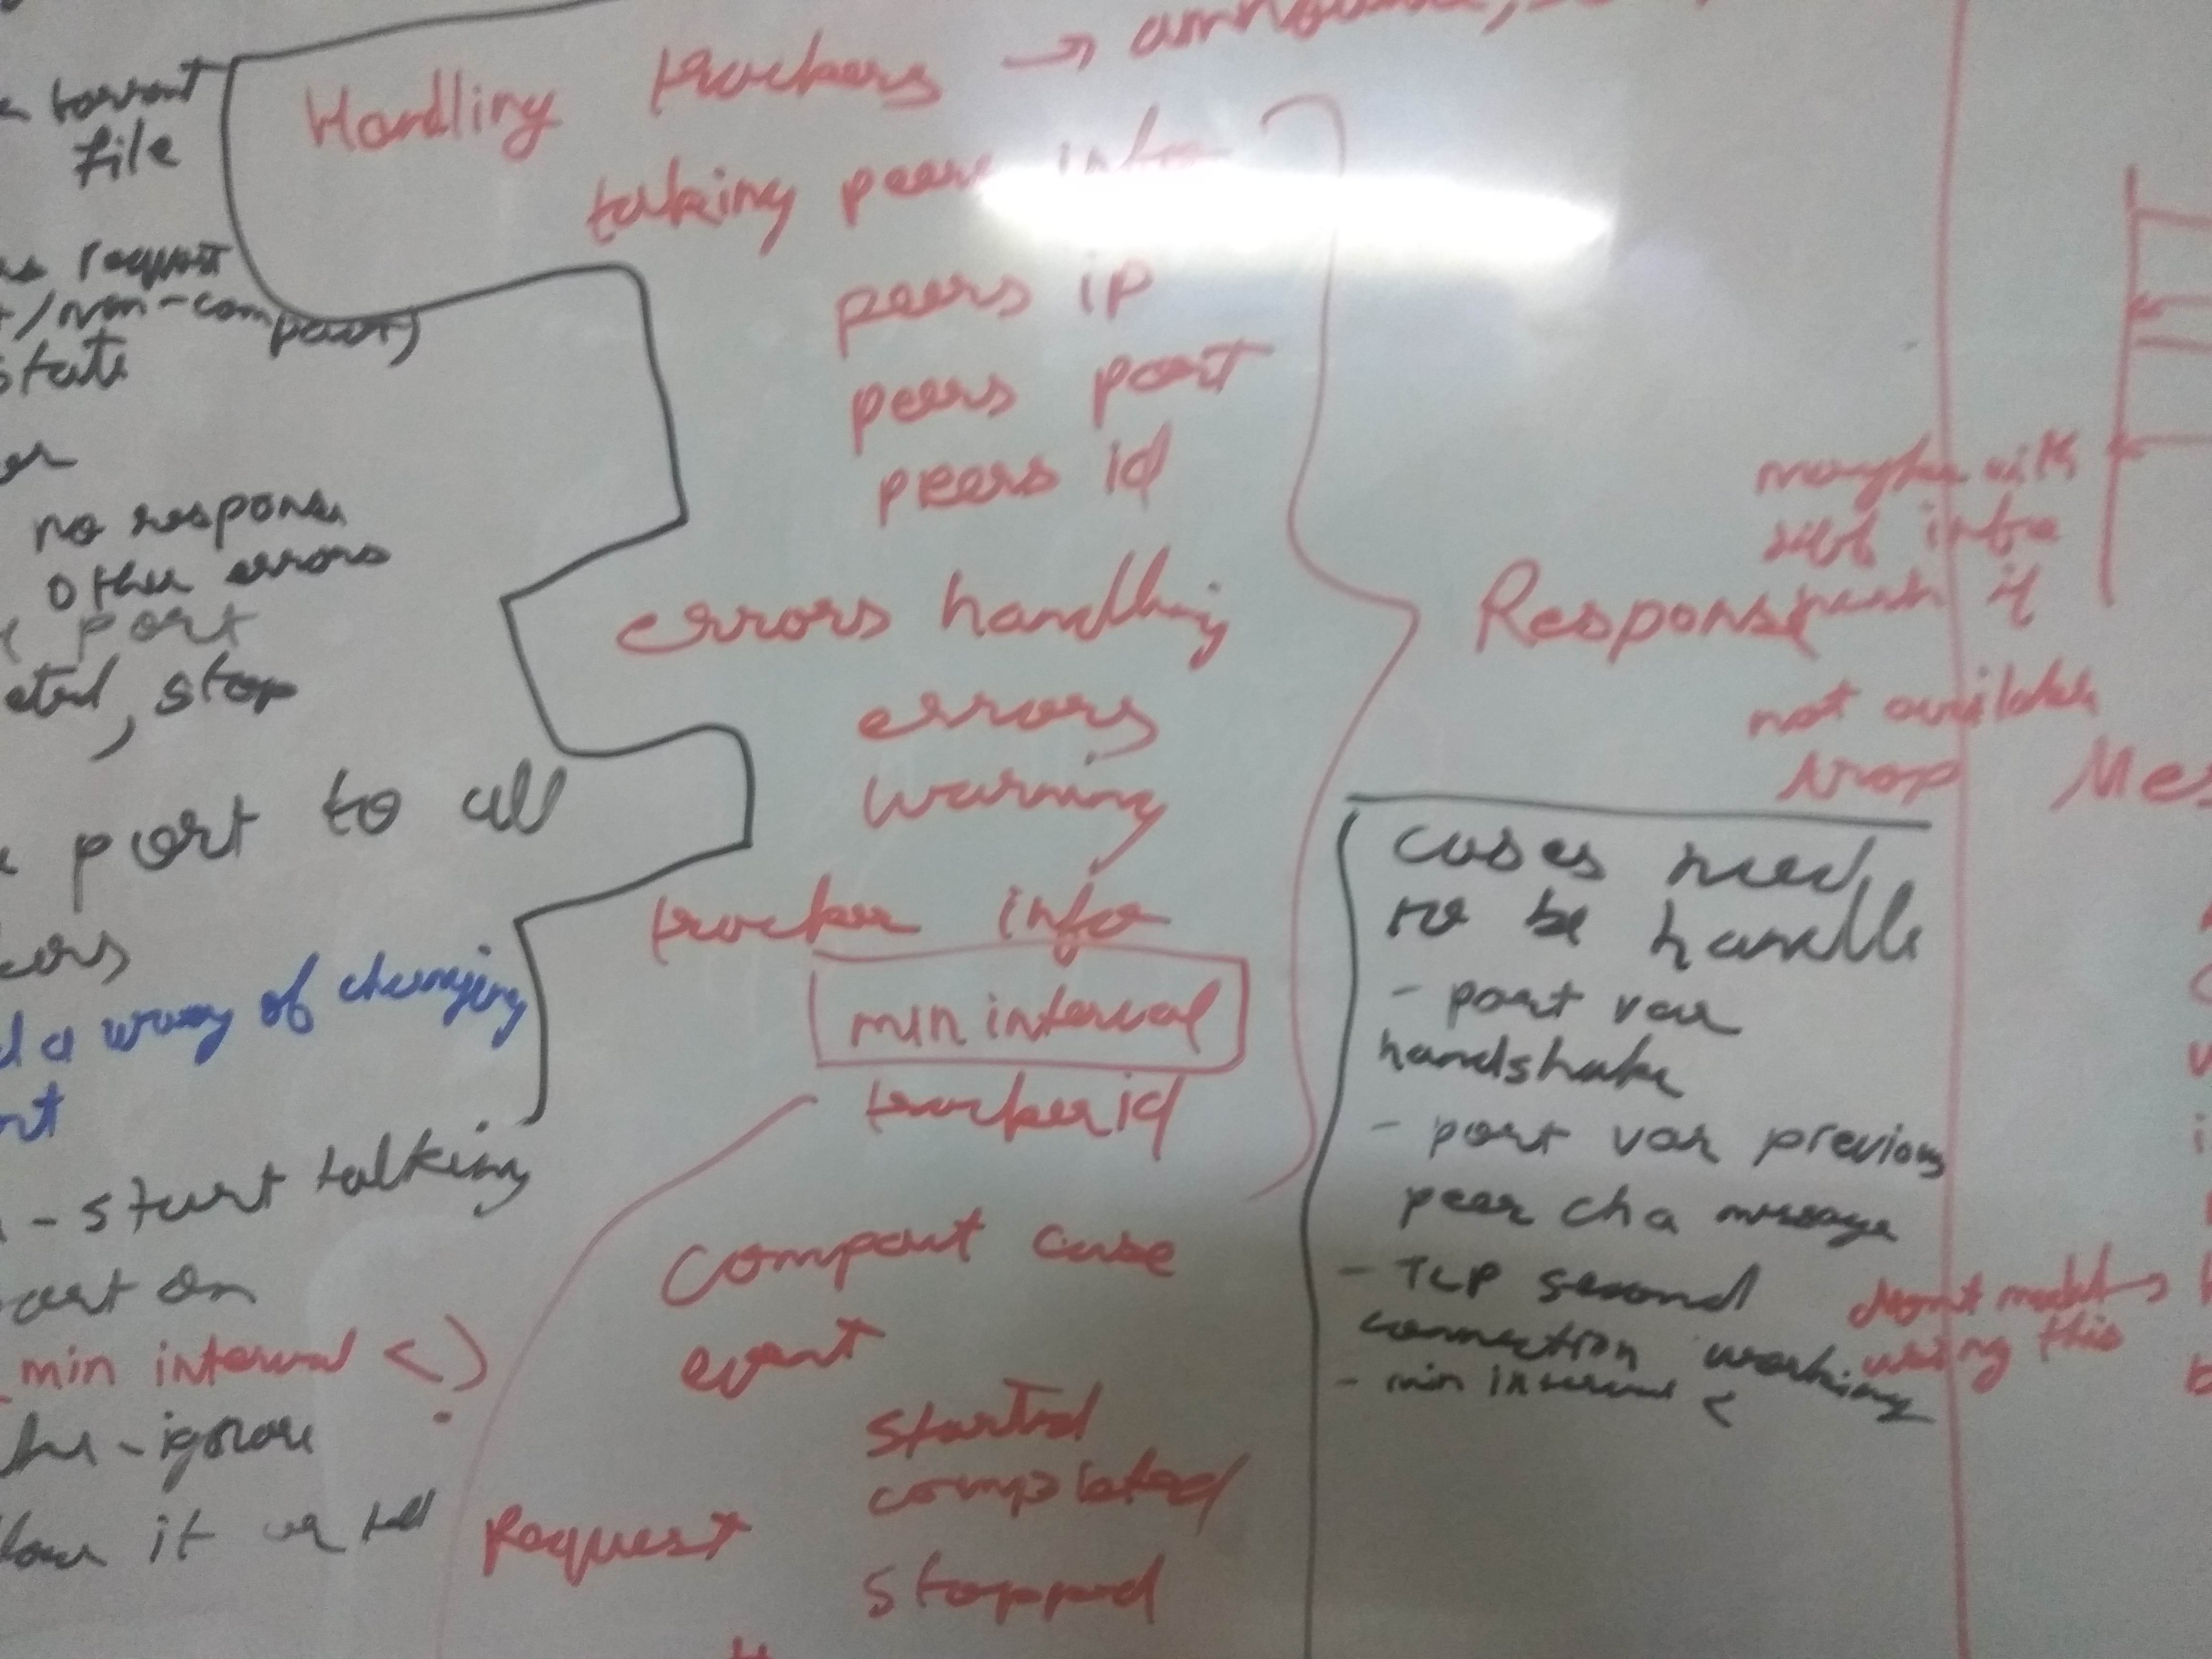 torrent
file
request
/non-compact)
state
no response
other errors
port
, stop
port to all
a way of changing
- start talking
on
min interval < )
- ignore
it or tell
Handling trackers →
taking peers info
peers ip
peers port
peers id
errors handling
errors
warning
tracker info
min interval
tracker id
Response
compact case
event
started
completed
stopped
Request
maybe with
info
if
not available
drop
Mes
cases need
to be handle
- port var
handshake
- port var previous
peer cha message
- TCP second
connection working
- min interval <
using this